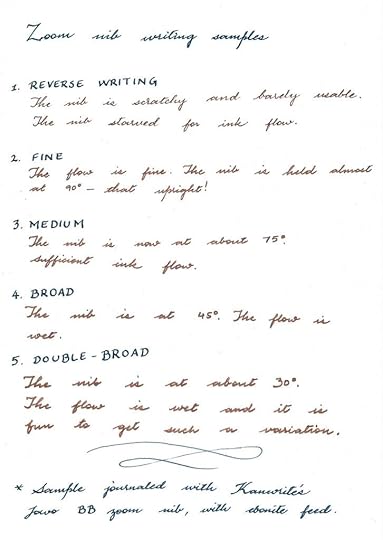 Zoom nib writing samples
1. REVERSE WRITING
The nib is scratchy and barely usable.
The nib starved for ink flow.
2. FINE
The flow is fine. The nib is held almost
at 90° – that upright!
3. MEDIUM
The nib is now at about 75°.
Sufficient ink flow.
4. BROAD
The nib is at 45°. The flow is
wet.
5. DOUBLE-BROAD
The nib is at about 30°.
The flow is wet and it is
fun to get such a variation.
* Sample journaled with Kanwrite's
Jowo BB zoom nib, with ebonite feed.